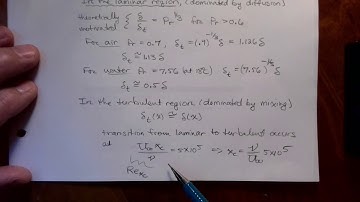 In the laminar region, (dominated by diffusion)
theoretically motivated { δ/δt = Pr^1/3 for Pr > 0.6
For air Pr = 0.7, δt = (.7)^-1/3 δ = 1.126 δ
δt ≅ 1.13 δ
For water Pr = 7.56 (at 18°C) δt = (7.56)^-1/3 δ
δt ≅ 0.5 δ
In the turbulent region (dominated by mixing)
δt(x) ≅ δ(x)
transition from laminar to turbulent occurs
at U∞ xc / ν = 5×10^5 ⇒ xc = ν/U∞ 5×10^5
Re xc